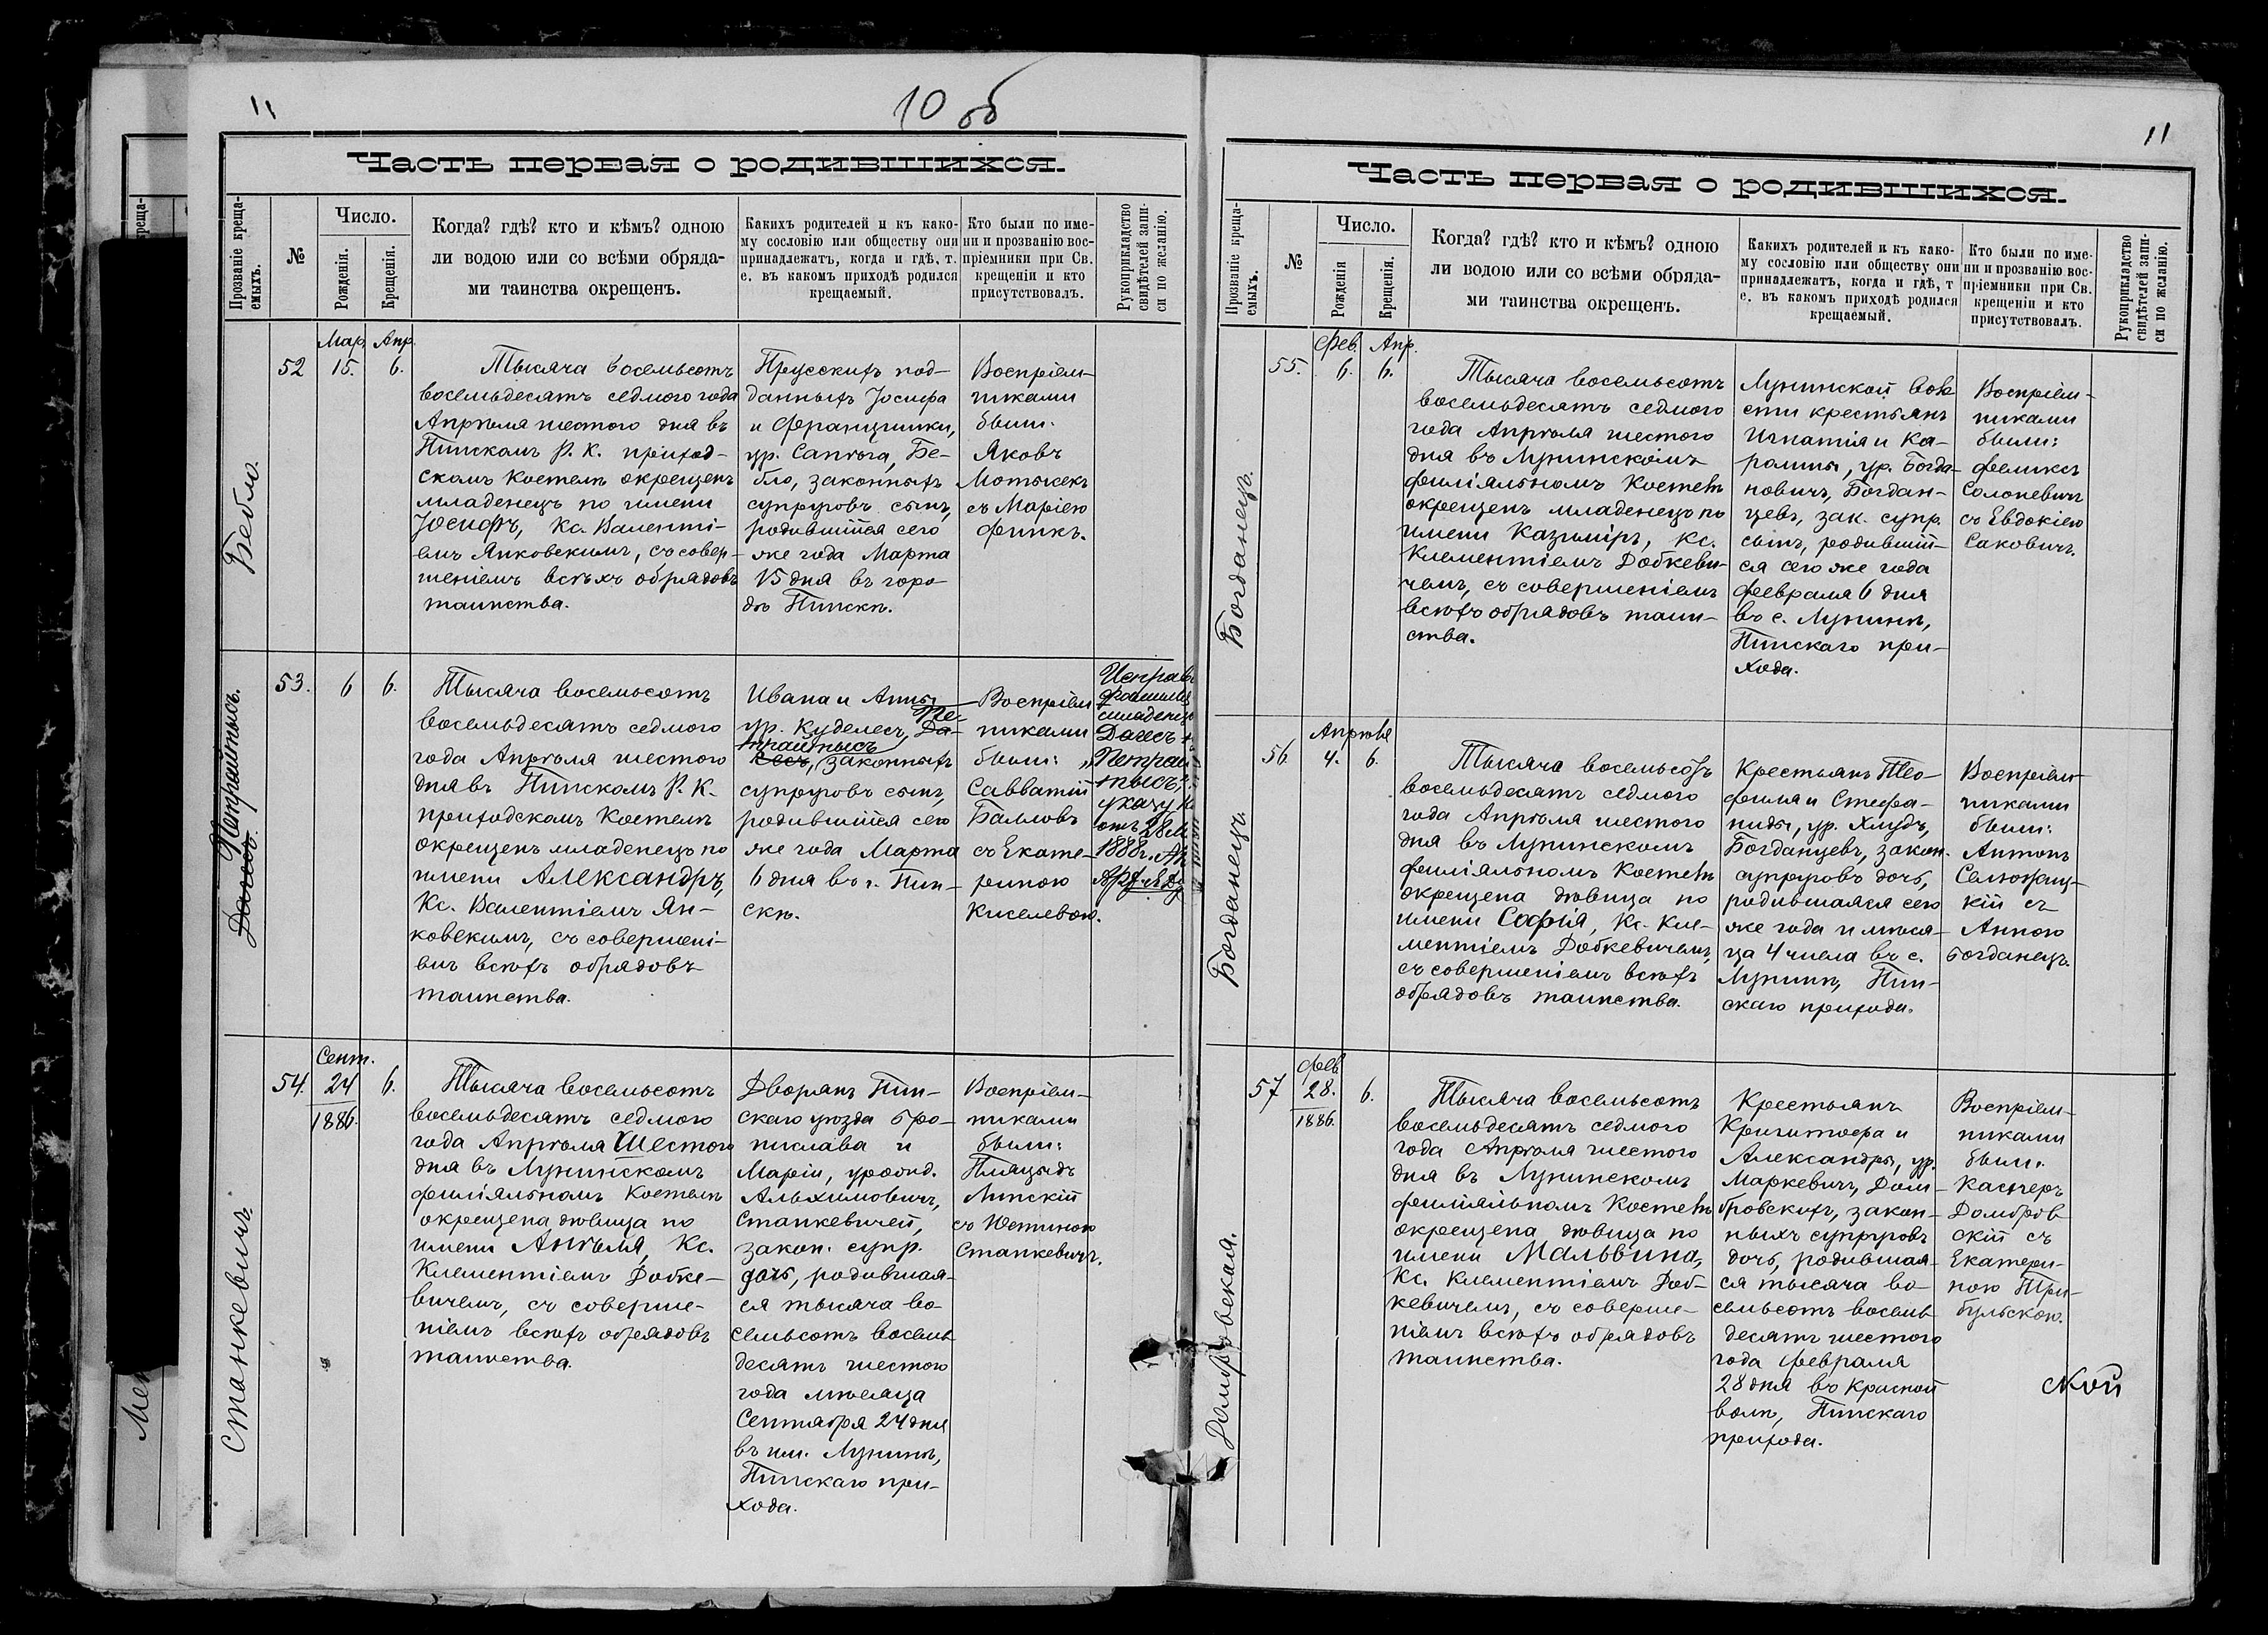 11
10 об
Часть первая о родившихся.
Прозваніе креща-
емыхъ.
№
Число.
Рожденія.
Крещенія.
Когда? гдѣ? кто и кѣмъ? одною
ли водою или со всѣми обряда-
ми таинства окрещенъ.
Какихъ родителей и къ како-
му сословію или обществу они
принадлежатъ, когда и гдѣ, т.
е. въ какомъ приходѣ родился
крещаемый.
Кто были по име-
ни и прозванію вос-
пріемники при Св.
крещеніи и кто
присутствовалъ.
Рукоприкладство
свидѣтелей запи-
си по желанію.
Бебло.
52
Мар. 15.
Апр. 6.
Тысяча восемьсотъ
восемьдесятъ седмого года
Апрѣля шестого дня въ
Пинскомъ Р. К. приход-
скомъ Костелѣ окрещенъ
младенецъ по имени
Іосифъ, Кс. Валенті-
емъ Янковскимъ, съ совер-
шеніемъ всѣхъ обрядовъ
таинства.
Прусскихъ под-
данныхъ Іосифа
и Францишки,
ур. Сапѣга, Бе-
бло, законныхъ
супруговъ сынъ,
родившійся сего
же года Марта
15 дня въ горо-
дѣ Пинскѣ.
Воспріем-
никами
были:
Яковъ
Мотысекъ
съ Маріею
Финкъ.
Петрайтысъ.
53.
6
6.
Тысяча восемьсотъ
восемьдесятъ седмого
года Апрѣля шестого
дня въ Пинскомъ Р. К.
приходскомъ Костелѣ
окрещенъ младенецъ по
имени Александръ,
Кс. Валентіемъ Ян-
ковскимъ, съ совершені-
емъ всѣхъ обрядовъ
таинства.
Ивана и Анны
ур. Куделесъ, Пе-
трайтысъ, законныхъ
супруговъ сынъ,
родившійся сего
же года Марта
6 дня въ г. Пин-
скѣ.
Воспріем
никами
были:
Савватій
Баллов
съ Екате-
риною
Киселевою.
Исправ
фамилія
младенца
Дачесъ
„Петрай
тысъ"
указу
отъ 28
1888 г.
Станкевичъ.
54.
Сент. 24
1886.
6.
Тысяча восемьсотъ
восемьдесятъ седмого
года Апрѣля Шестого
дня въ Лунинскомъ
филіяльномъ Костелѣ
окрещена дѣвица по
имени Анѣля, Кс.
Клементіемъ Добке-
вичемъ, съ соверше-
ніемъ всѣхъ обрядовъ
таинства.
Дворянъ Пин-
скаго уѣзда Бро-
нислава и
Маріи, урожд.
Альхимовичъ,
Станкевичей,
закон. супр.
дочь, родившая-
ся тысяча во-
семьсотъ восемь
десятъ шестого
года мѣсяца
Сентября 24 дня
въ им. Лунинѣ,
Пинскаго при-
хода.
Воспріем-
никами
были:
Пляцыдъ
Липскій
съ Юстиною
Станкевичъ.
11
Часть первая о родившихся.
Прозваніе креща-
емыхъ.
№
Число.
Рожденія
Крещенія.
Когда? гдѣ? кто и кѣмъ? одною
ли водою или со всѣми обряда-
ми таинства окрещенъ.
Какихъ родителей и къ како-
му сословію или обществу они
принадлежатъ, когда и гдѣ, т
е. въ какомъ приходѣ родился
крещаемый.
Кто были по име-
ни и прозванію вос-
пріемники при Св.
крещеніи и кто
присутствовалъ.
Рукоприкладство
свидѣтелей запи-
си по желанію.
Богданецъ.
55.
Фев. 6.
Апр. 6.
Тысяча восемьсотъ
восемьдесятъ седмого
года Апрѣля шестого
дня въ Лунинскомъ
филіяльномъ Костелѣ
окрещенъ младенецъ по
имени Казиміръ, Кс.
Клементіемъ Добкеви-
чемъ, съ совершеніемъ
всѣхъ обрядовъ таин-
ства.
Лунинской воло
сти крестьянъ
Игнатія и Ка-
ролины, ур. Богда-
новичъ, Богдан-
цевъ, зак. супр.
сынъ, родившій-
ся сего же года
Февраля 6 дня
въ с. Лунинѣ,
Пинскаго при-
хода.
Воспріем-
никами
были:
Феликсъ
Солоневичъ
съ Евдокіею
Саковичъ.
Богданецъ.
56.
Апрѣля
4.
6.
Тысяча восемьсотъ
восемьдесятъ седмого
года Апрѣля шестого
дня въ Лунинскомъ
филіяльномъ Костелѣ
окрещена дѣвица по
имени Софія, Кс. Кле-
ментіемъ Добкевичемъ,
съ совершеніемъ всѣхъ
обрядовъ таинства.
Крестьянъ Тео-
филя и Стефа-
ниды, ур. Хлудъ,
Богданцевъ, закон.
супруговъ дочь,
родившаяся сего
же года и мѣся-
ца 4 числа въ с.
Лунинѣ, Пин-
скаго прихода.
Воспріем-
никами
были:
Антонъ
кій съ
Анною
Богданецъ.
Домбровская.
57
Фев. 28.
1886.
6.
Тысяча восемьсотъ
восемьдесятъ седмого
года Апрѣля шестого
дня въ Лунинскомъ
филіяльномъ Костелѣ
окрещена дѣвица по
имени Мальвина,
Кс. Клементіемъ Доб-
кевичемъ, съ соверше-
ніемъ всѣхъ обрядовъ
таинства.
Крестьянъ
Криштофа и
Александры, ур.
Маркевичъ, Дом-
бровскихъ, закон-
ныхъ супруговъ
дочь, родившая-
ся тысяча во-
семьсотъ восемь
десятъ шестого
года Февраля
28 дня въ Красной
волѣ, Пинскаго
прихода.
Воспріем-
никами
были:
Касперъ
Домбров
скій съ
Екатери-
ною Три-
бульскою.